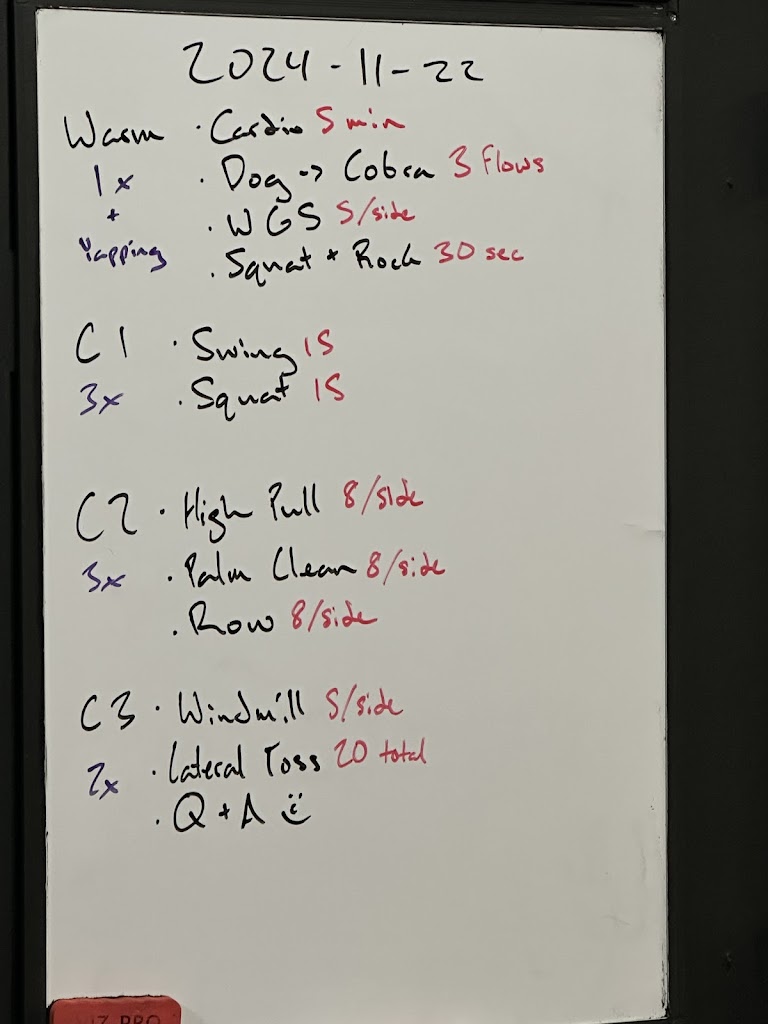 2024-11-22
Warm · Cardio 5 min
1x · Dog -> Cobra 3 Flows
+ · WGS 5/side
Yapping · Squat + Rock 30 sec
C1 · Swing 15
3x · Squat 15
C2 · High Pull 8/side
3x · Palm Clean 8/side
· Row 8/side
C3 · Windmill 5/side
2x · Lateral Toss 20 total
· Q + A :)
PRO